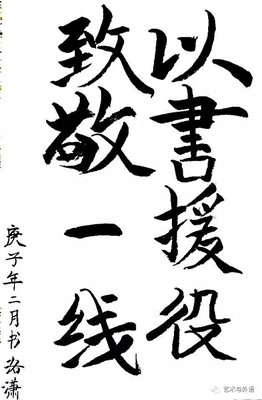 以書援役
致敬一线
庚子年二月书 洛潇
艺术与外语